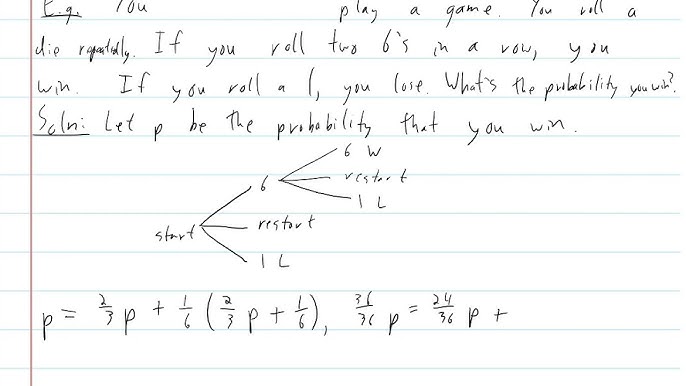 E.g. You play a game. You roll a
die repeatedly. If you roll two 6's in a row, you
win. If you roll a 1, you lose. What's the probability you win?
Soln: Let p be the probability that you win.
6 W
6 restart
1 L
start restart
1 L
p = 2/3 p + 1/6 (2/3 p + 1/6), 36/36 p = 24/36 p +